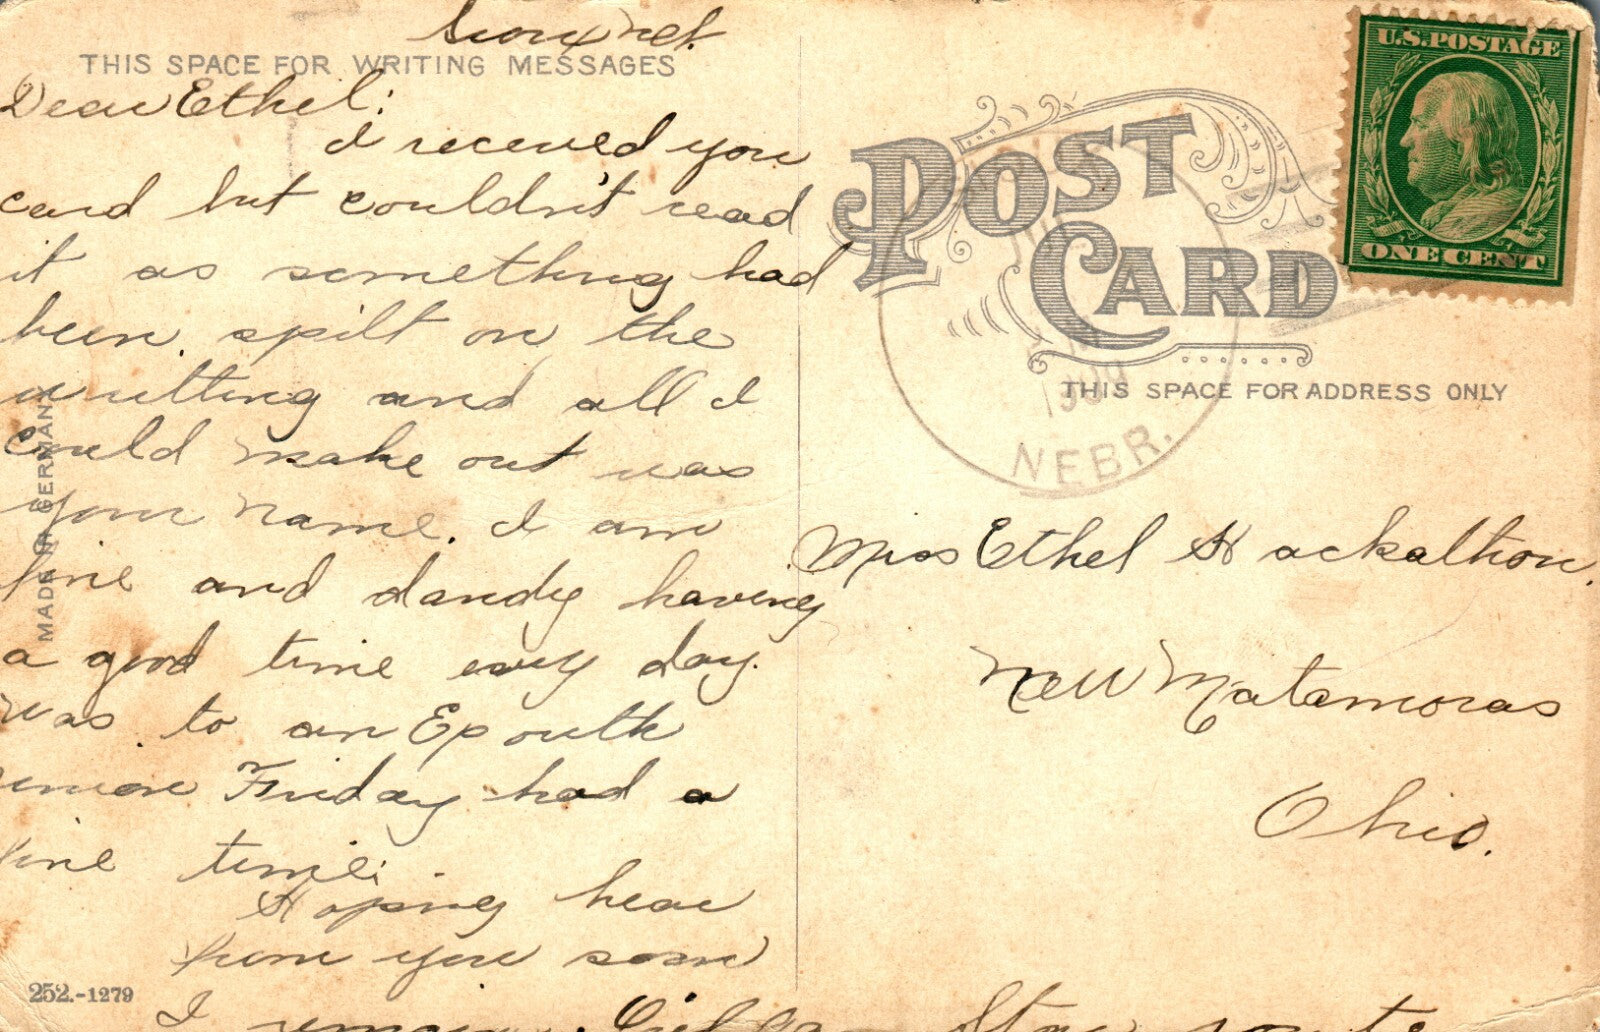 THIS SPACE FOR WRITING MESSAGES
Dear Ethel:
I received you
card but couldn't read
it as something had
been spilt on the
writting and all I
could make out was
your name. I am
fine and dandy having
a good time every day.
was to an Epouth
union Friday had a
fine time:
Hoping hear
from you soon
I remain
MADE IN GERMANY
252.-1279
U.S. POSTAGE
ONE CENT
POST
CARD
THIS SPACE FOR ADDRESS ONLY
1909
NEBR.
Miss Ethel Hackathon.
New Matamoras
Ohio.